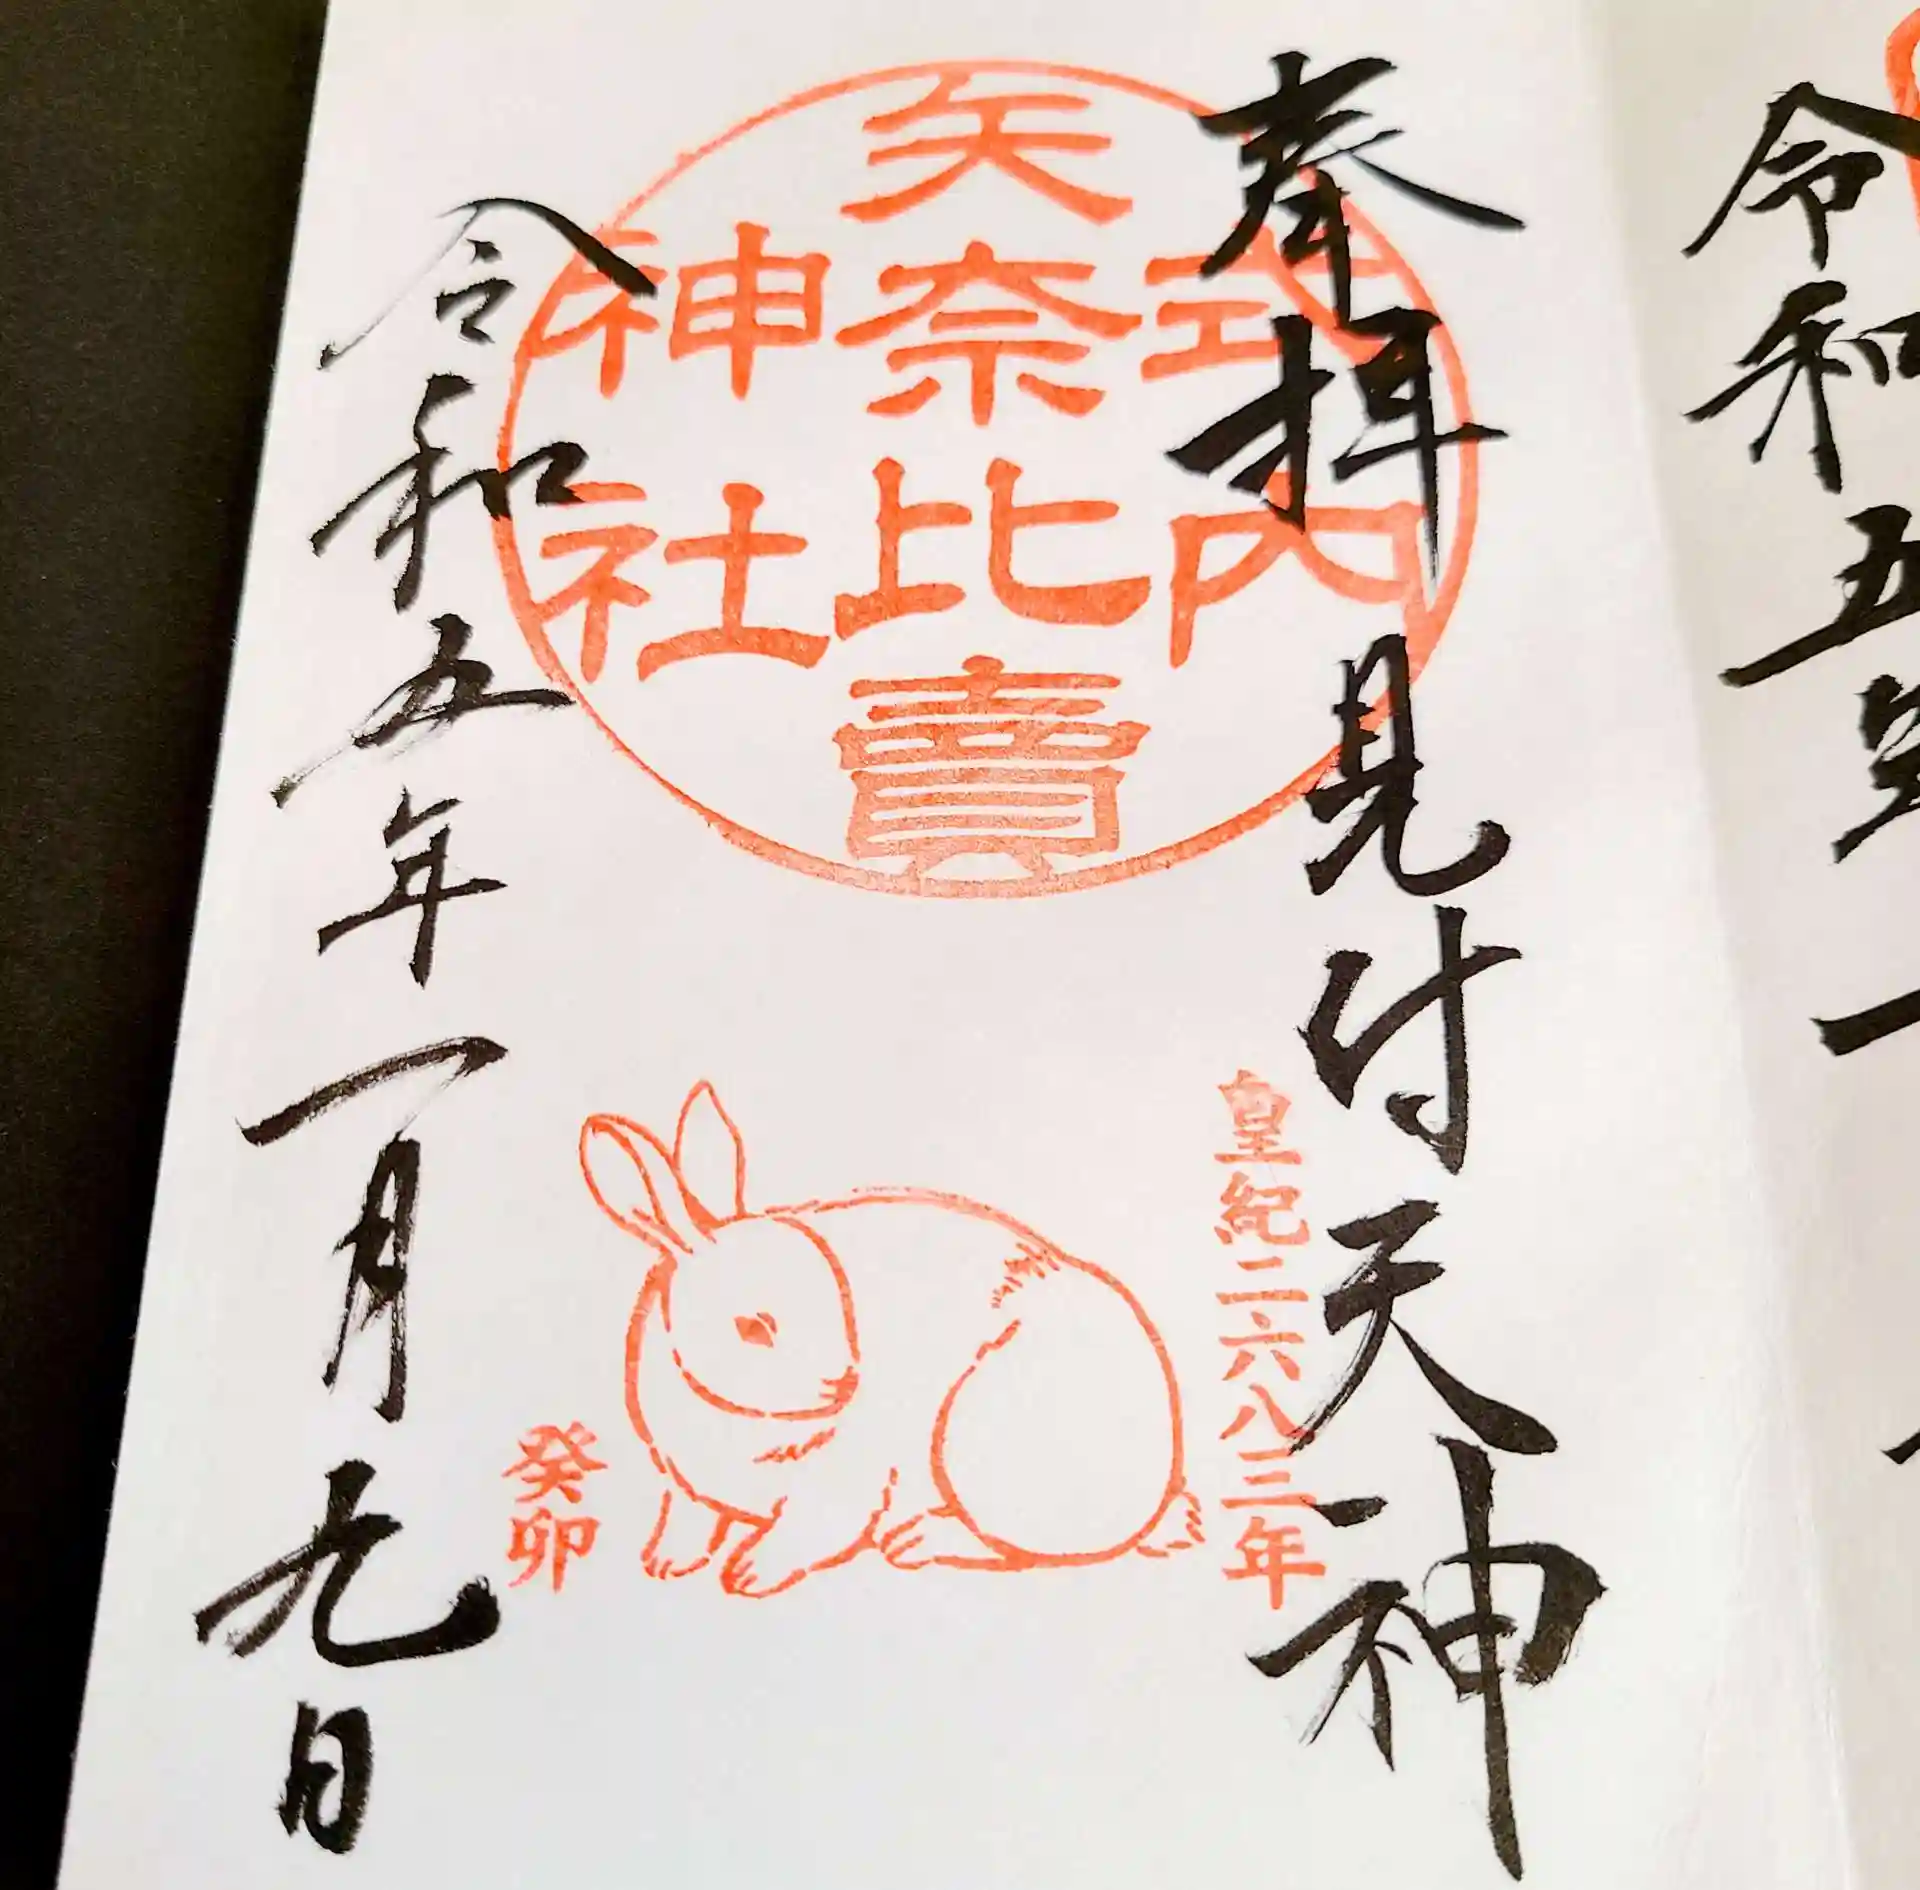 奉拝 見付天神
式内
矢奈比賣
神社
皇紀二六八三年
癸卯
令和五年一月九日
令和五年一